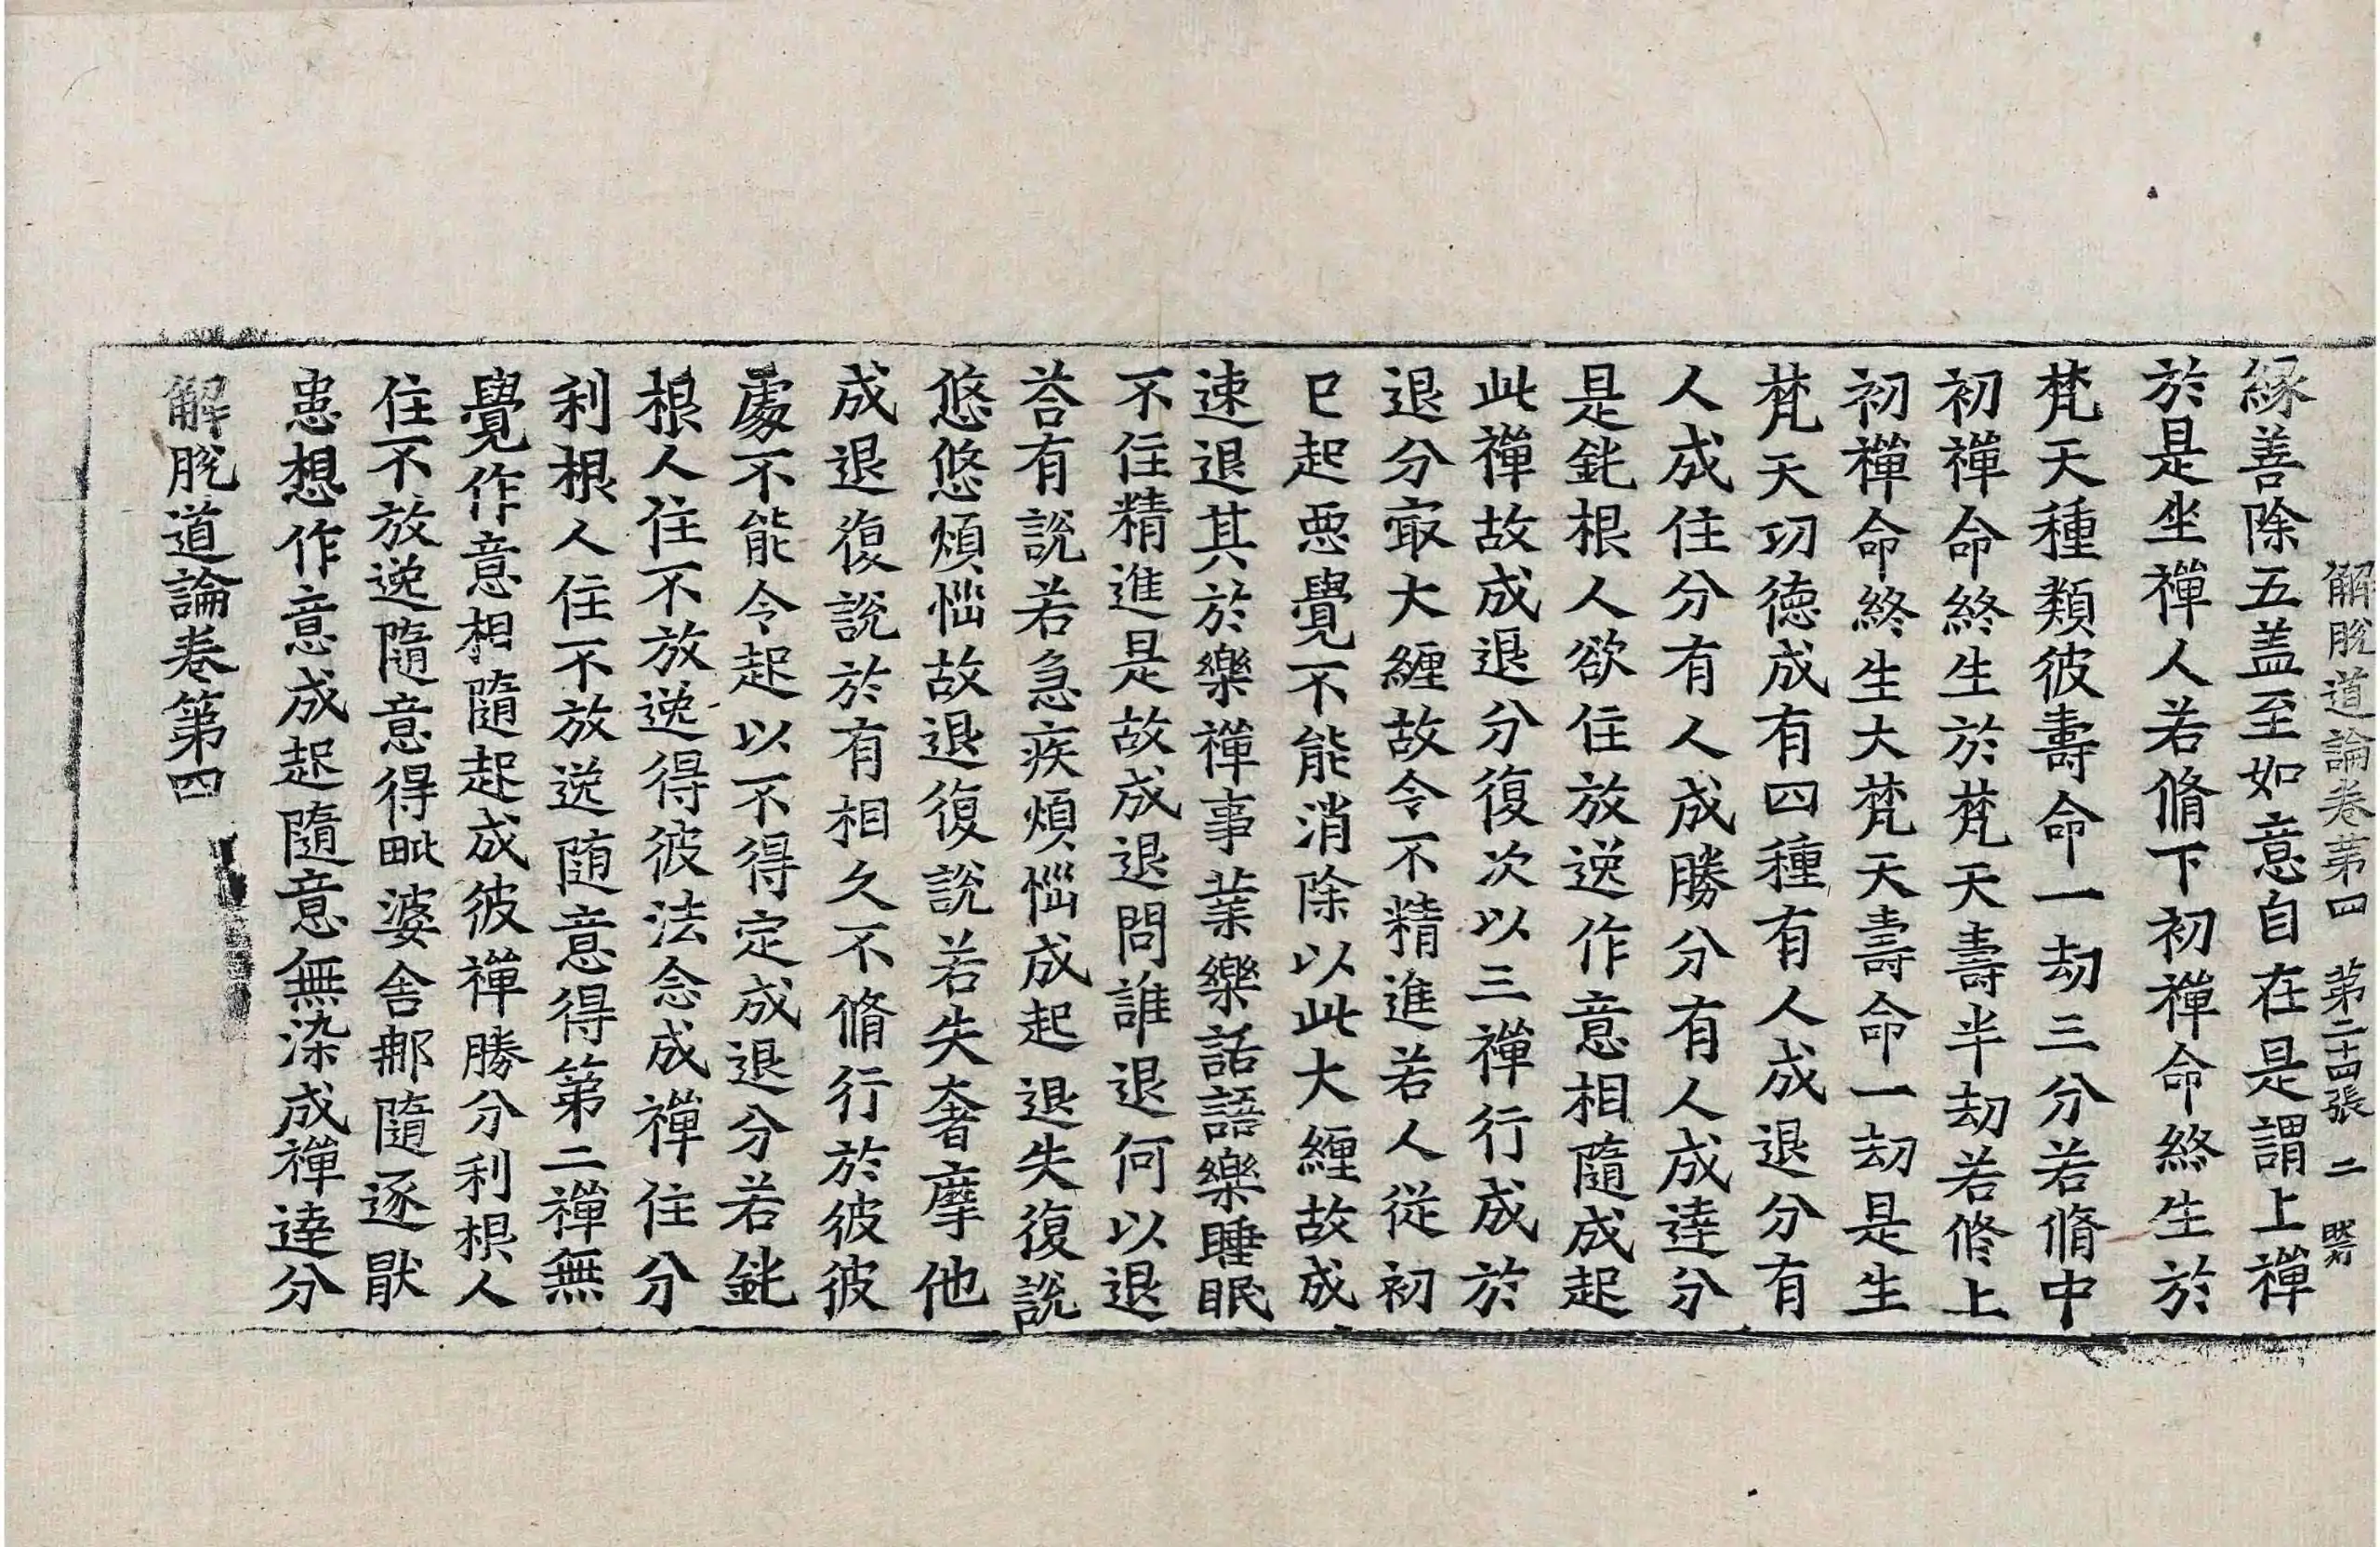 解脫道論卷第四　第二十四張　二
縁善除五盖至如意自在是謂上禪
於是坐禪人若脩下初禪命終生於
梵天種類彼壽命一劫三分若脩中
初禪命終生於梵天壽半劫若修上
初禪命終生大梵天壽命一劫是生
梵天功徳成有四種有人成退分有
人成住分有人成勝分有人成達分
是鈍根人欲住放逸作意相隨成起
此禪故成退分復次以三禪行成於
退分㝡大纏故令不精進若人從初
已起惡覺不能消除以此大纏故成
速退其於樂禪事業樂話語樂睡眠
不住精進是故成退問誰退何以退
荅有說若急疾煩惱成起退失復說
悠悠煩惱故退復說若失奢摩他
成退復說於有相久不脩行於彼彼
處不能令起以不得定成退分若鈍
根人住不放逸得彼法念成禪住分
利根人住不放逸随意得第二禪無
覺作意相隨起成彼禪勝分利根人
住不放逸隨意得毗婆舍那隨逐猒
患想作意成起隨意無染成禪達分
解脫道論卷第四